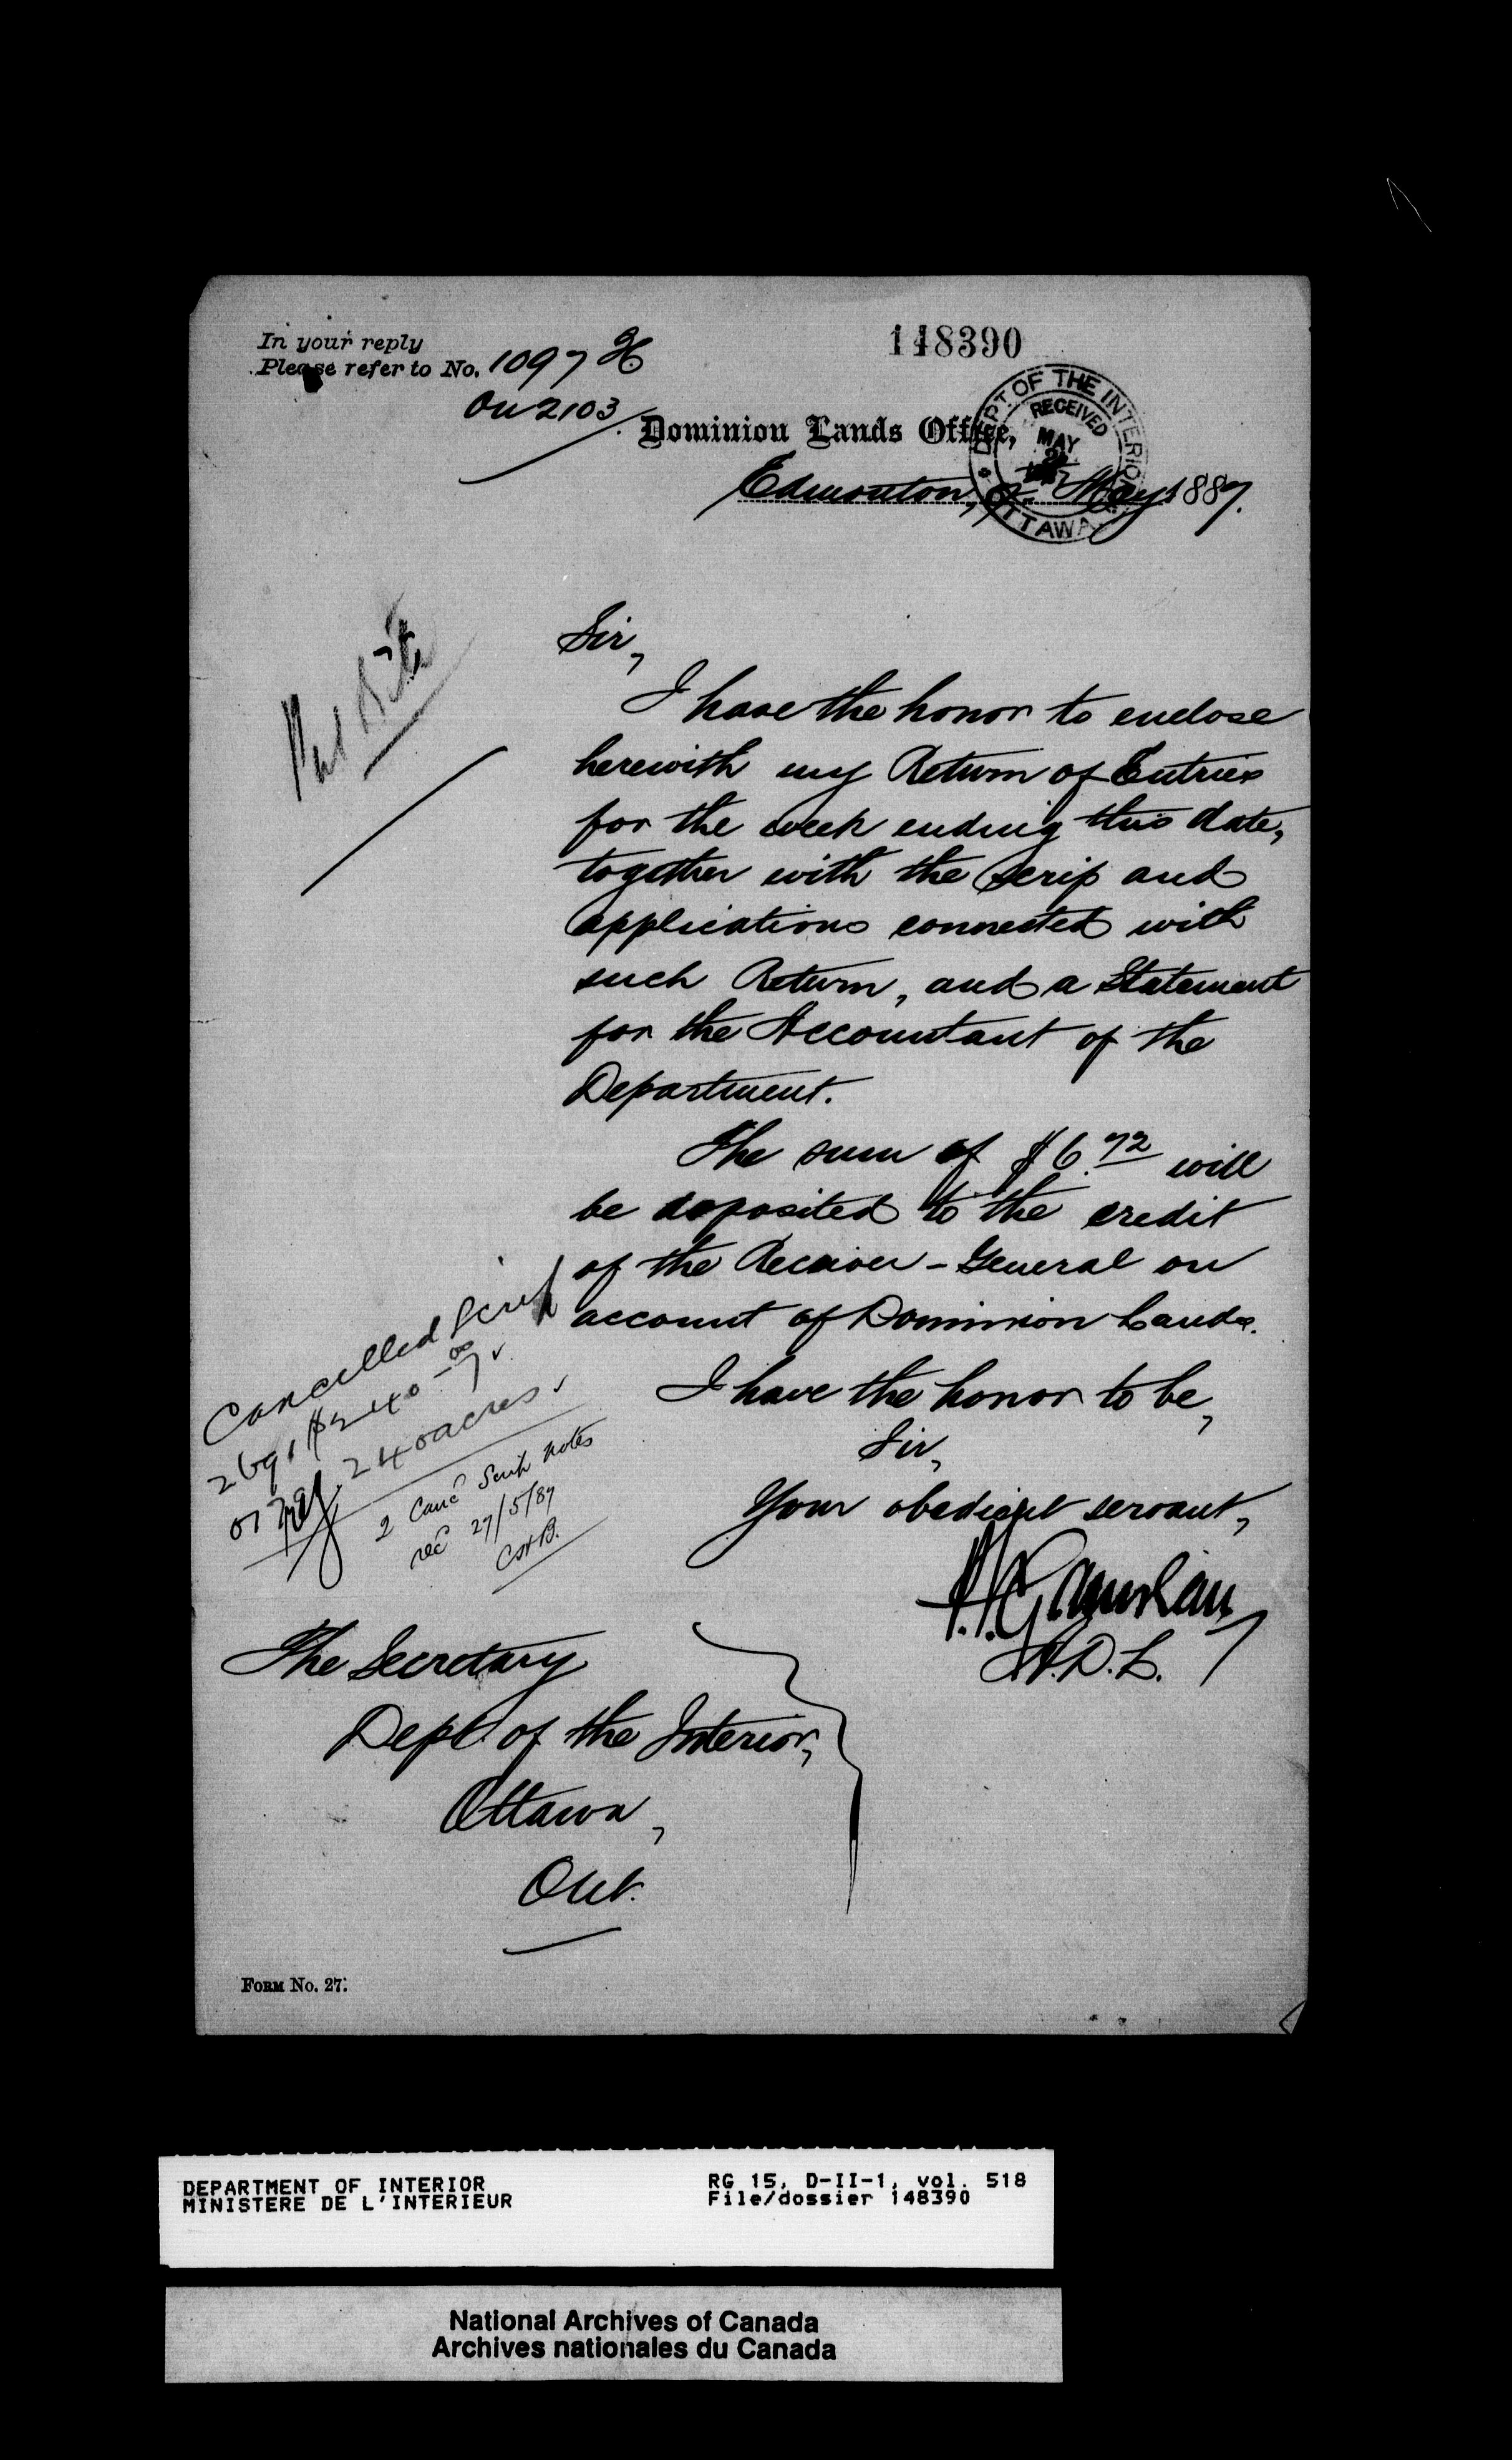 In your reply
Please refer to No. 1097 H
On 2103
148390
DEPT. OF THE INTERIOR
RECEIVED
MAY
OTTAWA
Dominion Lands Office,
Edmonton, May 1887.
Sir,
I have the honor to enclose
herewith my Return of Entries
for the week ending this date,
together with the Scrip and
applications connected with
such Return, and a Statement
for the Accountant of the
Department.
The sum of $6.72 will
be deposited to the credit
of the Receiver-General on
account of Dominion Lands.
I have the honor to be,
Sir,
Your obedient servant,
A.D.L.
Cancelled Scrip
2691 $240 00
240 acres
2 Canc'd Scrip Notes
rec'd 27/5/87
The Secretary
Dept of the Interior,
Ottawa,
Ont.
FORM No. 27.
DEPARTMENT OF INTERIOR
MINISTERE DE L'INTERIEUR
RG 15, D-II-1, vol. 518
File/dossier 148390
National Archives of Canada
Archives nationales du Canada